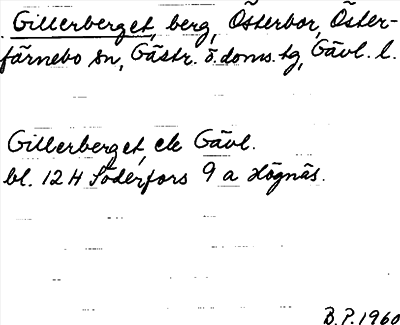 Gillerberget, berg, Österbor, Öster-
färnebo sn, Gästr. ö. doms. tg, Gävl. l.
Gillerberget, ek Gävl.
bl. 12 H Söderfors 9 a Högnäs.
B.P. 1960